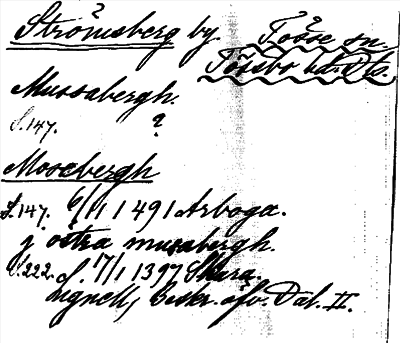 Strömsberg by. Tösse sn.
Tössbo hd. Ds.
Mussabergh.
S. 147. ?
Mosebergh
S. 147. 6/11 1491 Arboga.
j östra mussabergh.
S. 222. S. 17/1 1397 Skara.
Lignell, Beskr. öfv. Dal. II.